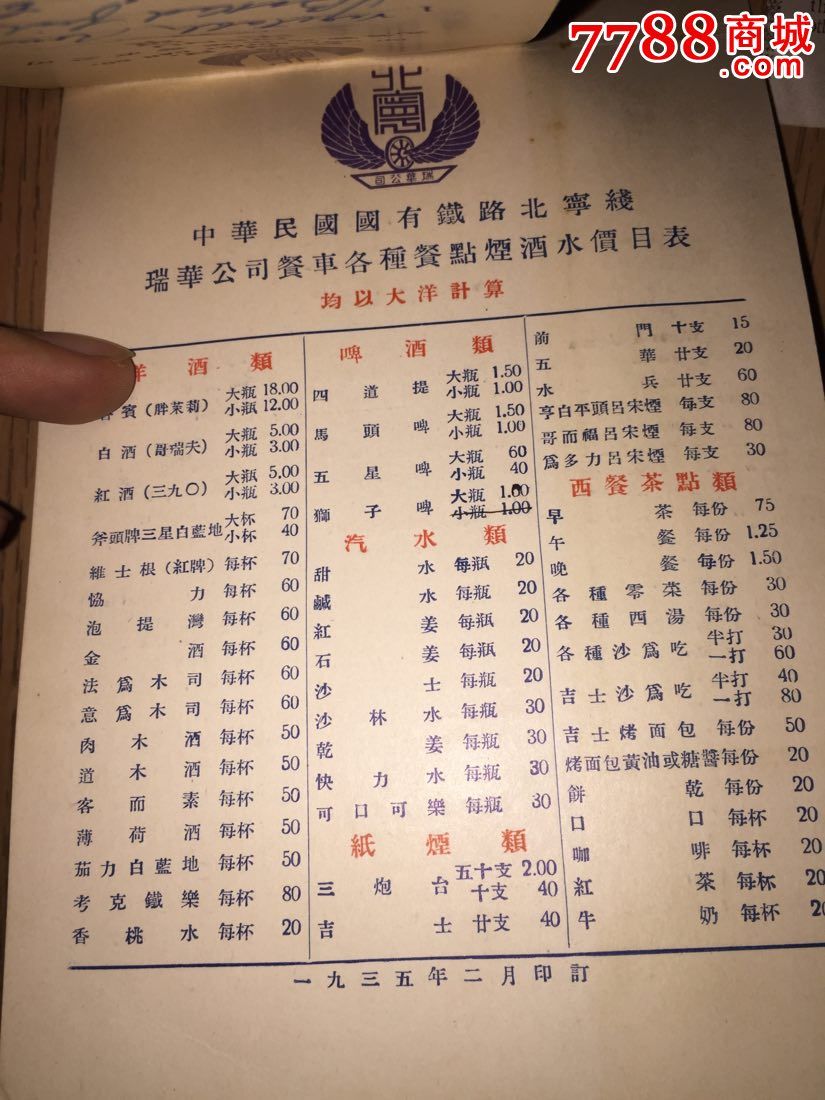 7788商城
北寧
司公華瑞
中華民國國有鐵路北寧綫
瑞華公司餐車各種餐點煙酒水價目表
均以大洋計算
洋酒類
賓(胖茉莉) 大瓶 18.00 小瓶 12.00
白酒(哥瑞夫) 大瓶 5.00 小瓶 3.00
紅酒(三九〇) 大瓶 5.00 小瓶 3.00
斧頭牌三星白藍地 大杯 70 小杯 40
維士根(紅牌) 每杯 70
恊力 每杯 60
泡提灣 每杯 60
金酒 每杯 60
法爲木司 每杯 60
意爲木司 每杯 60
肉木酒 每杯 50
道木酒 每杯 50
客而素 每杯 50
薄荷酒 每杯 50
茄力白藍地 每杯 50
考克鐵樂 每杯 80
香桃水 每杯 20
啤酒類
四道提 大瓶 1.50 小瓶 1.00
馬頭啤 大瓶 1.50 小瓶 1.00
五星啤 大瓶 60 小瓶 40
獅子啤 大瓶 1.00 小瓶 1.00
汽水類
甜水 每瓶 20
鹹水 每瓶 20
紅姜 每瓶 20
石姜 每瓶 20
沙士 每瓶 20
沙林水 每瓶 30
乾姜 每瓶 30
快力水 每瓶 30
可口可樂 每瓶 30
紙煙類
三炮台 五十支 2.00 十支 40
吉士 廿支 40
前門 十支 15
五華 廿支 20
水兵 廿支 60
亨白平頭呂宋煙 每支 80
哥而福呂宋煙 每支 80
爲多力呂宋煙 每支 30
西餐茶點類
早茶 每份 75
午餐 每份 1.25
晚餐 每份 1.50
各種零菜 每份 30
各種西湯 每份 30
各種沙爲吃 半打 30 一打 60
吉士沙爲吃 半打 40 一打 80
吉士烤面包 每份 50
烤面包黃油或糖醬 每份 20
餅乾 每份 20
口口 每杯 20
咖啡 每杯 20
紅茶 每杯 20
牛奶 每杯 20
一九三五年二月印訂